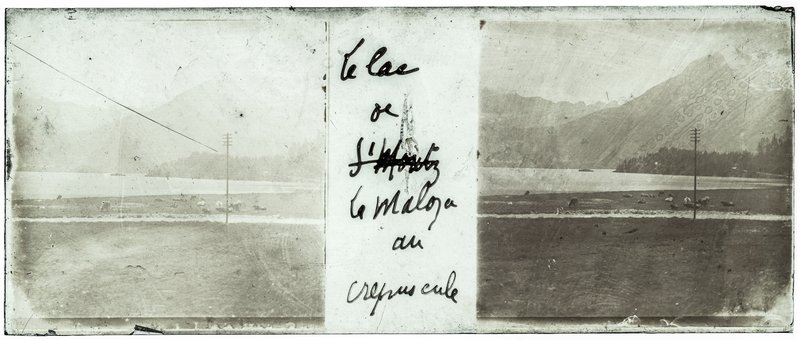 Le lac
de
St Moritz
Le Maloja
au
crepuscule